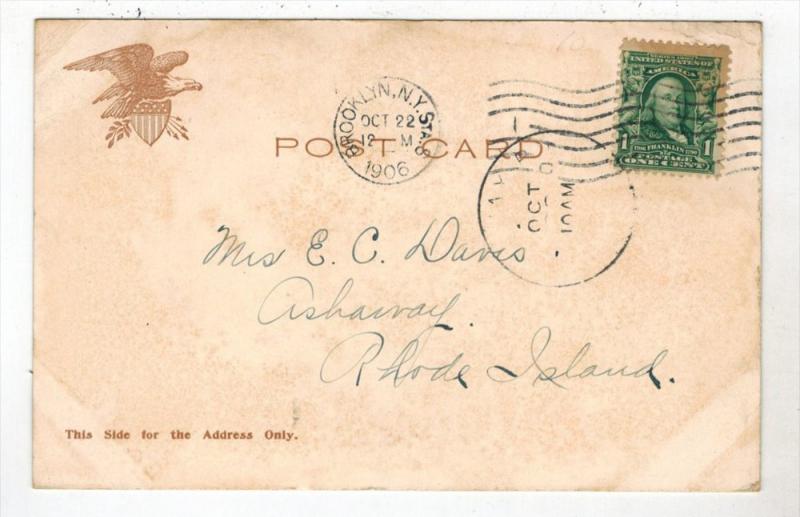 BROOKLYN, N.Y. STA.
OCT 22
12 M
1906
POST CARD
SERIES 1902
UNITED STATES OF
AMERICA
1 FRANKLIN 1
POSTAGE
ONE CENT
OCT
10AM
Mrs E. C. Davis
Ashaway.
Rhode Island.
This Side for the Address Only.